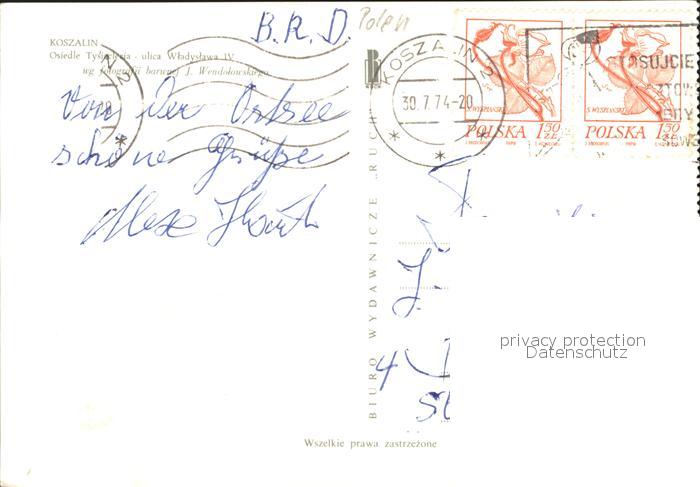 B.R.D. Polen
KOSZALIN
Osiedle Tysiąclecia - ulica Władysława IV
wg fotografii barwnej J. Wendołowskiego
Von der Ostsee
schöne Grüße
KOSZALIN 2
30.7.74-20
S. WYSPIAŃSKI
POLSKA 1.50 ZŁ
S. WYSPIAŃSKI
POLSKA 1.50 ZŁ
STOSUJCIE
BIURO WYDAWNICZE „RUCH"
4
privacy protection
Datenschutz
Wszelkie prawa zastrzeżone